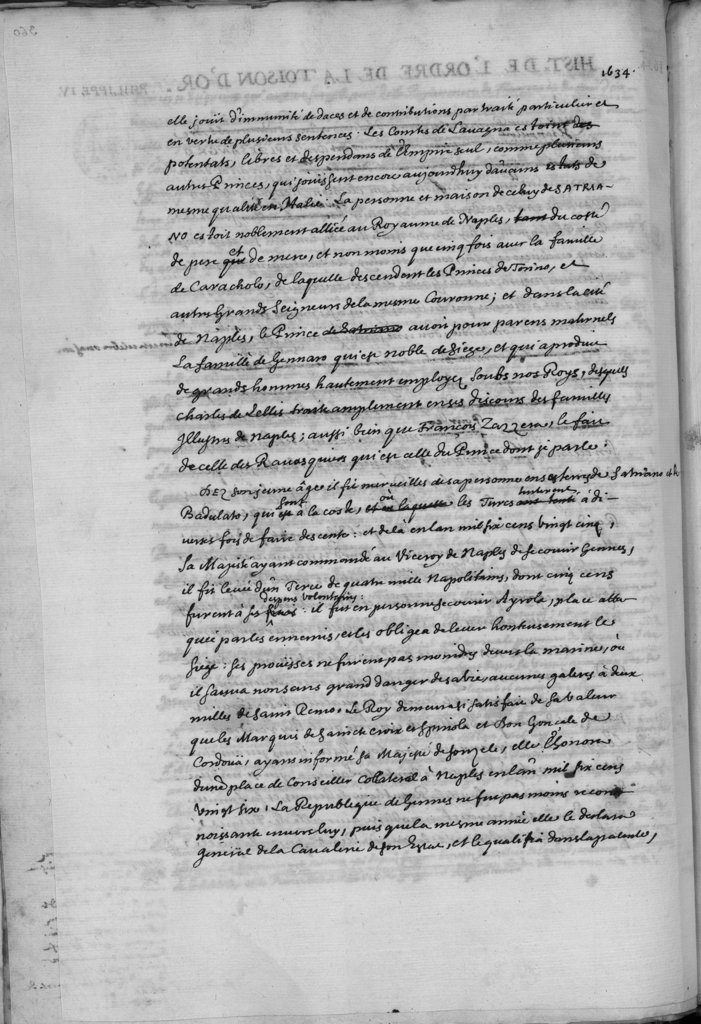 1634.
elle jouit d'immunité de daces et de contributions par traité particulier et
en vertu de plusieurs sentences. Les Comtes de Lavagna estoient des
potentats, libres et despendans de l'Empire seul, comme plusieurs
autres Princes, qui jouissent encore aujourdhuy d'aucuns estats de
mesme qualité en Italie: La personne et maison de celuy de SATRIA-
NO estoit noblement alliée au Royaume de Naples, tant du costé
de pere et que de mere, et non moins que cinq fois avec la famille
de Caracholo, de laquelle descendent les Princes de Torino, et
autres Grands Seigneurs de la mesme Couronne; et dans la cité
de Naples, le Prince de Satriano avoit pour parens maternels
La famille de Gennaro qui est noble de sieges, et qui a produit
de grands hommes hautement employez soubs nos Roys, desquels
Charles de Lellis traite amplement en ses discours des familles
Illustres de Naples; aussi bien que François Zazzera, le fait
de celle des Ravasquiers qui est celle du Prince dont je parle:
DEZ son jeune âge il fit merveilles de sa personne en ses terres de Satriano et de
Badulato, qui sont est à la coste, où et en laquelle les Turcs ont tenté à di-
verses fois de faire descente: et delà en lan mil six cens vingt cinq,
sa Majesté ayant commandé au Viceroy de Naples de secourir Gennes,
il fit levée d'un Terce de quatre mille Napolitains, dont cinq cens
furent à ses despens volontaires: il fut en personne secourir Ayrola, place atta-
quée par les ennemis, et les obligea de lever honteusement le
siege: ses proüesses ne furent pas moindres devers la marine, où
il sauva non sans grand danger de sa vie, aucunes galeres à deux
milles de Saint Remo. Le Roy demeura si satisfait de sa valeur
que les Marquis de Saincte Croix et Spinola et Don Goncale de
Cordoüa, ayans informé sa Majesté de son zele, elle l'honora
d'une place de Conseiller Collateral à Naples en lan mil six cens
vingt six. La Republique de Gennes ne fut pas moins recon-
noissante envers luy, puis que la mesme année elle le declara
General de la Cavalerie de son Estat, et le qualifia dans la patente,